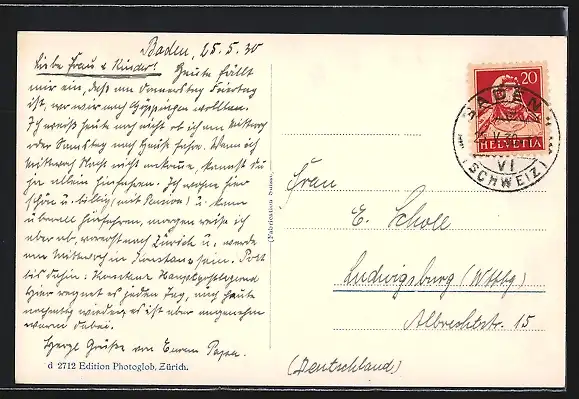 Baden, 25.5.30
Liebe Frau & Kinder!
Heute fällt
mir ein, daß am Donnerstag Feiertag
ist, wo wir nach Göppingen wollten.
Ich weiß heute noch nicht ob ich am Mittwoch
oder Samstag nach Hause fahre. Wenn ich
Mittwoch Nacht nicht ankomme, kannst du
ja allein hinfahren. Ich wohne hier
schön u. billig (mit Pension) u. kann
überall hinfahren, morgen reise ich
aber ab, vorerst nach Zürich u. werde
am Mittwoch in Konstanz sein. Post
bis dahin: Konstanz Hauptpostlagernd
Hier regnet es jeden Tag, auch heute
wieder, es ist aber angenehm
warm dabei.
Herzl Grüße von Eurem Papa.
d 2712 Edition Photoglob, Zürich.
(Fabrication Suisse)
20
HELVETIA
BADEN
V.30
VI
(SCHWEIZ)
Frau
E. Scholl
Ludwigsburg (Wttbg)
Albrechtstr. 15
(Deutschland)